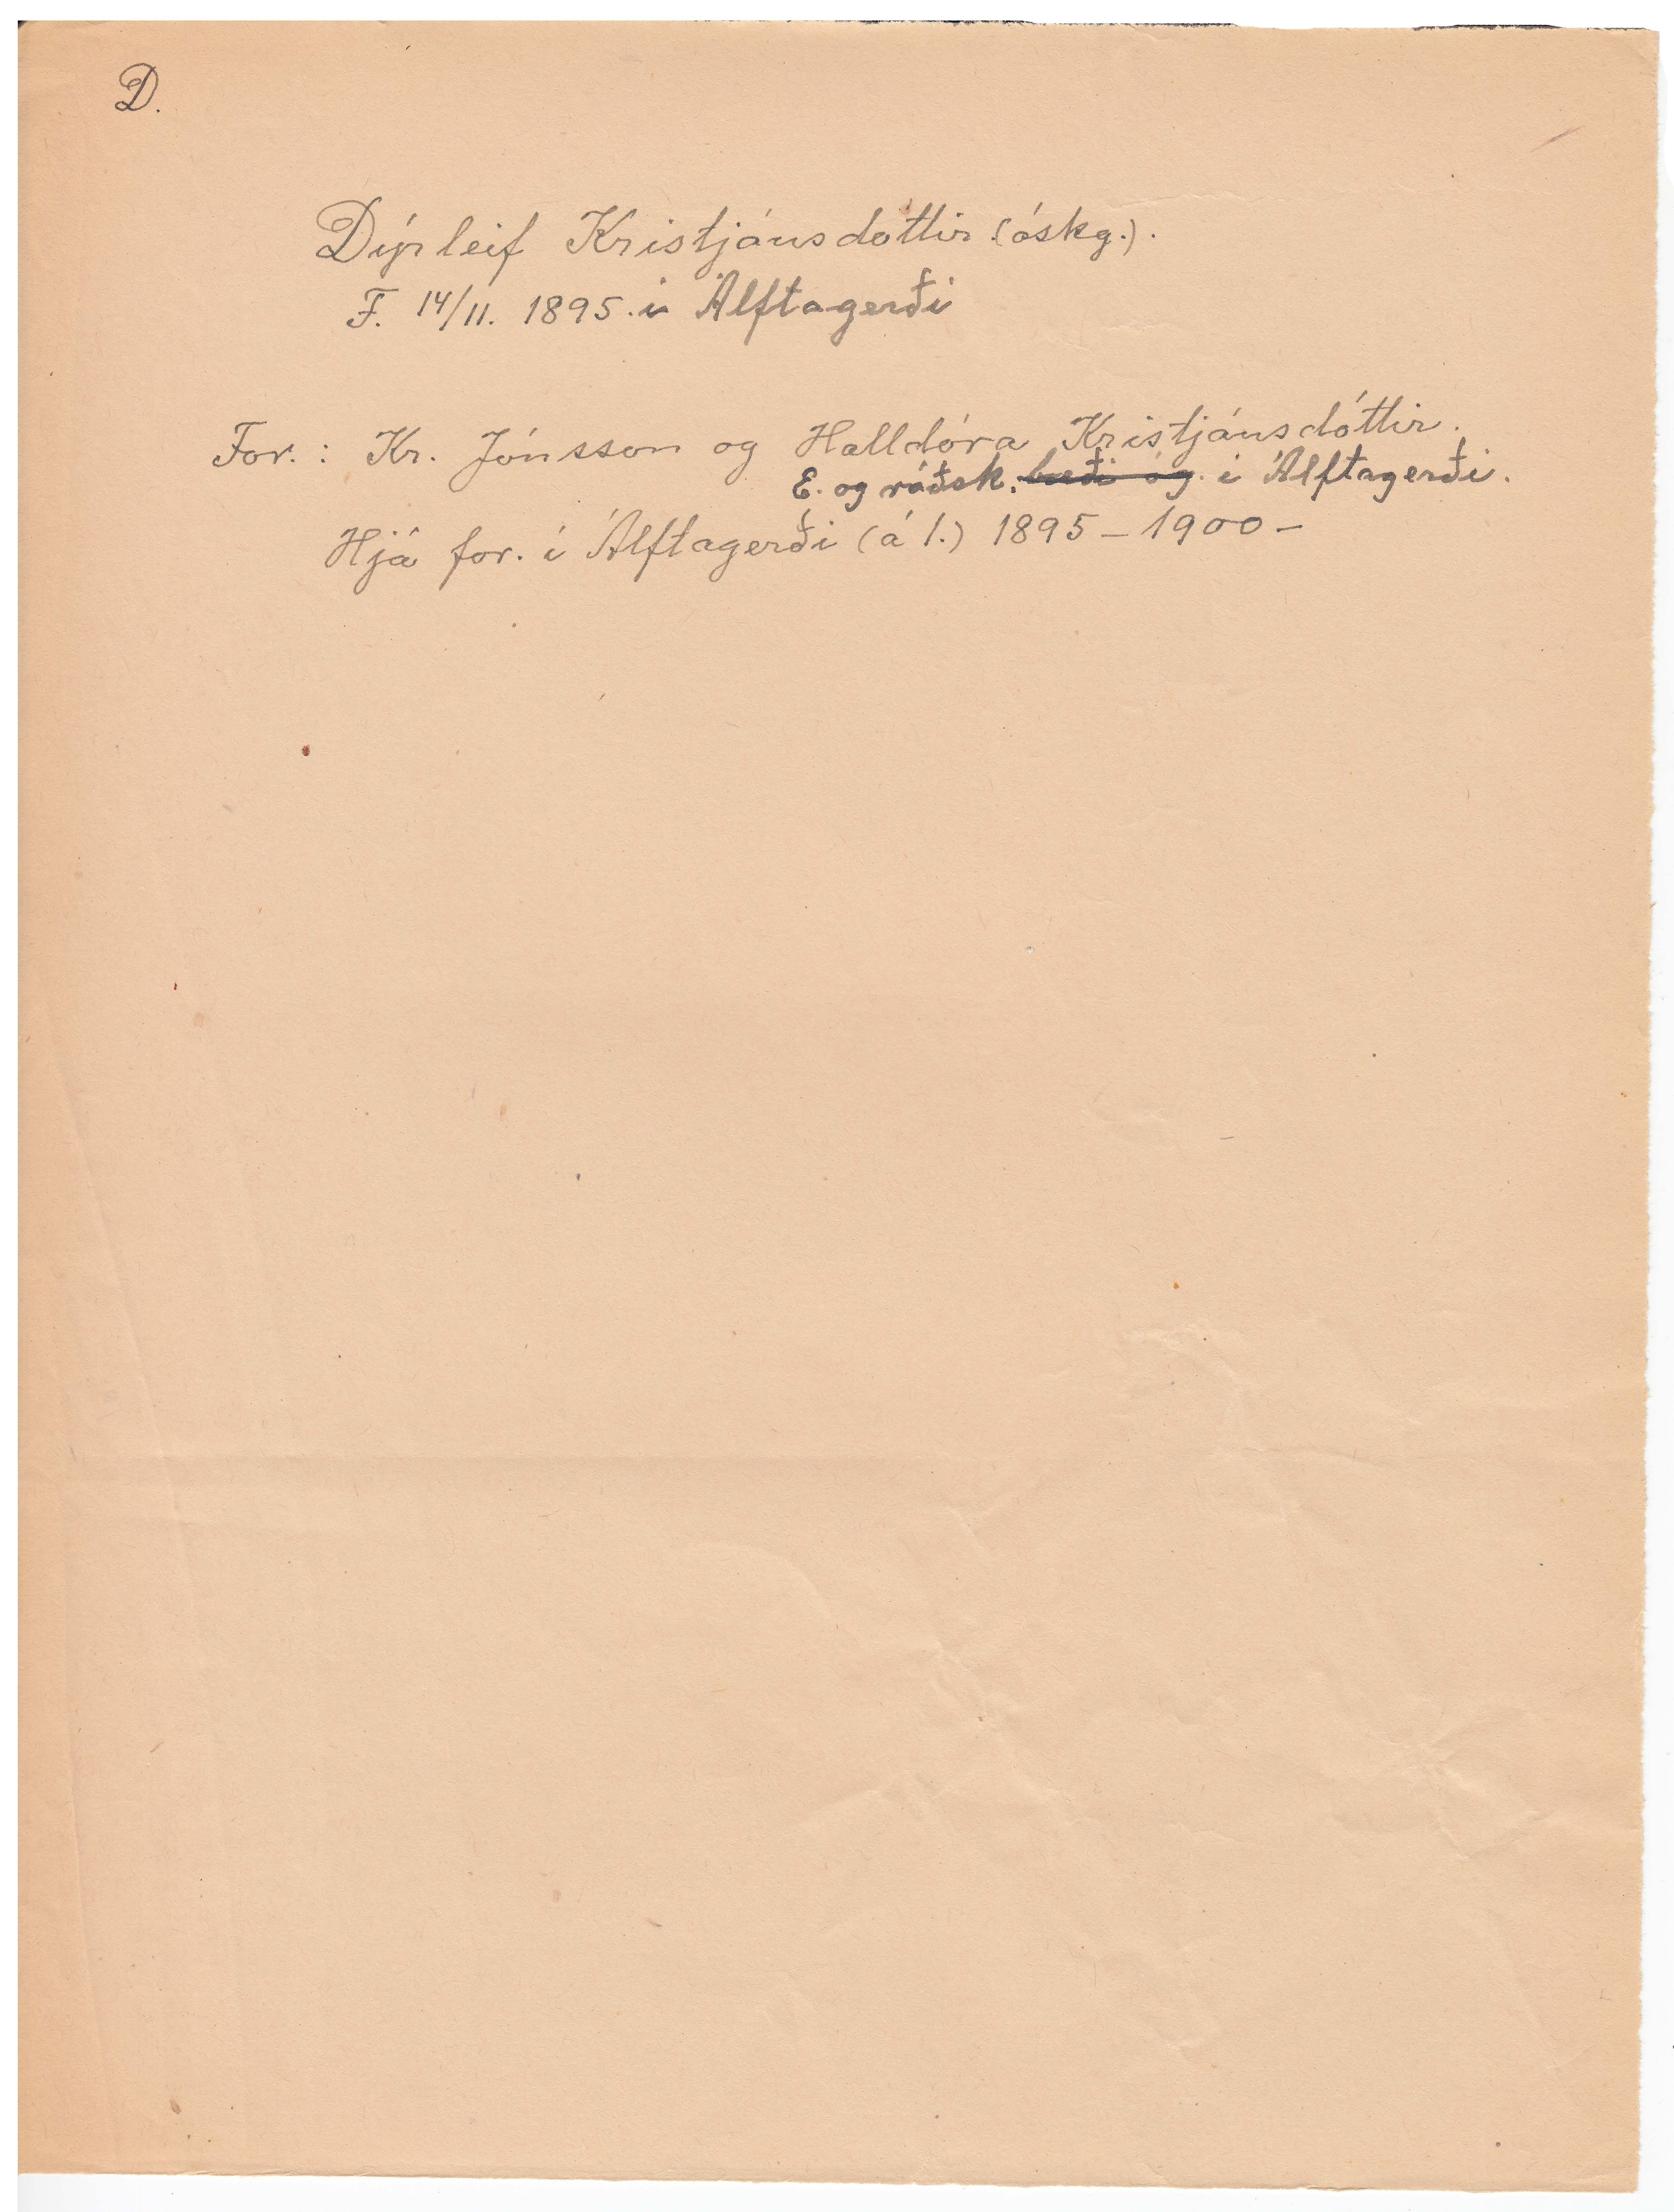 D.
Dýrleif Kristjánsdóttir (óskg.).
F. 14/11. 1895. í Álftagerði
For.: Kr. Jónsson og Halldóra Kristjánsdóttir.
E. og ráðsk. bæði óg. í Álftagerði.
Hjá for. í Álftagerði (á l.) 1895 – 1900 –